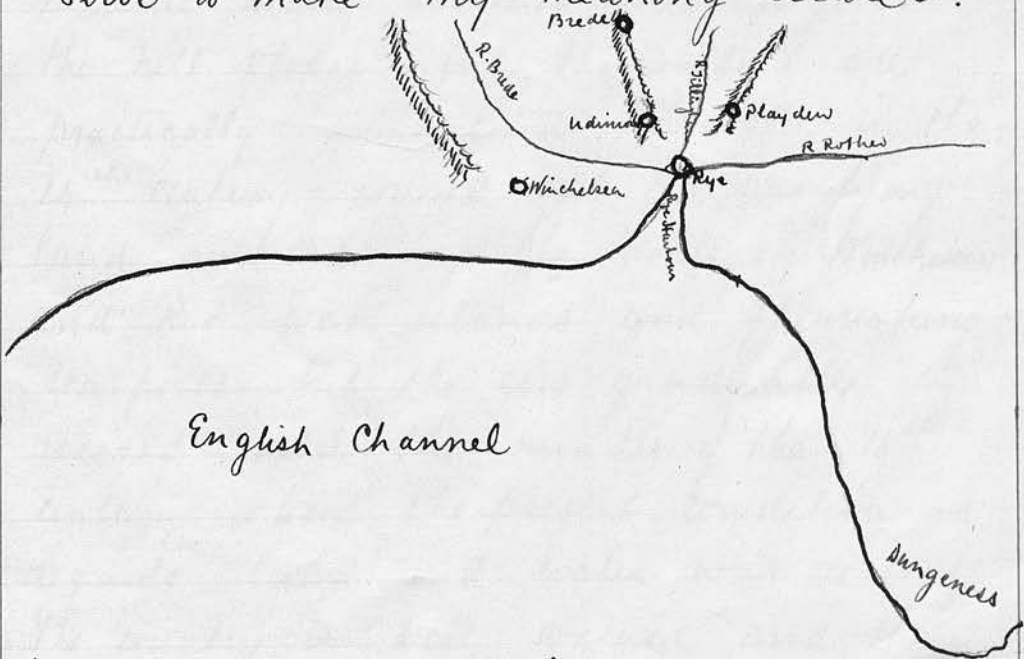 serve to make my meaning clearer.
Brede
R. Brede
R. Till.
Udimore
Playden
R Rother
Winchelsea
Rye
Rye Harbour
English Channel
Dungeness